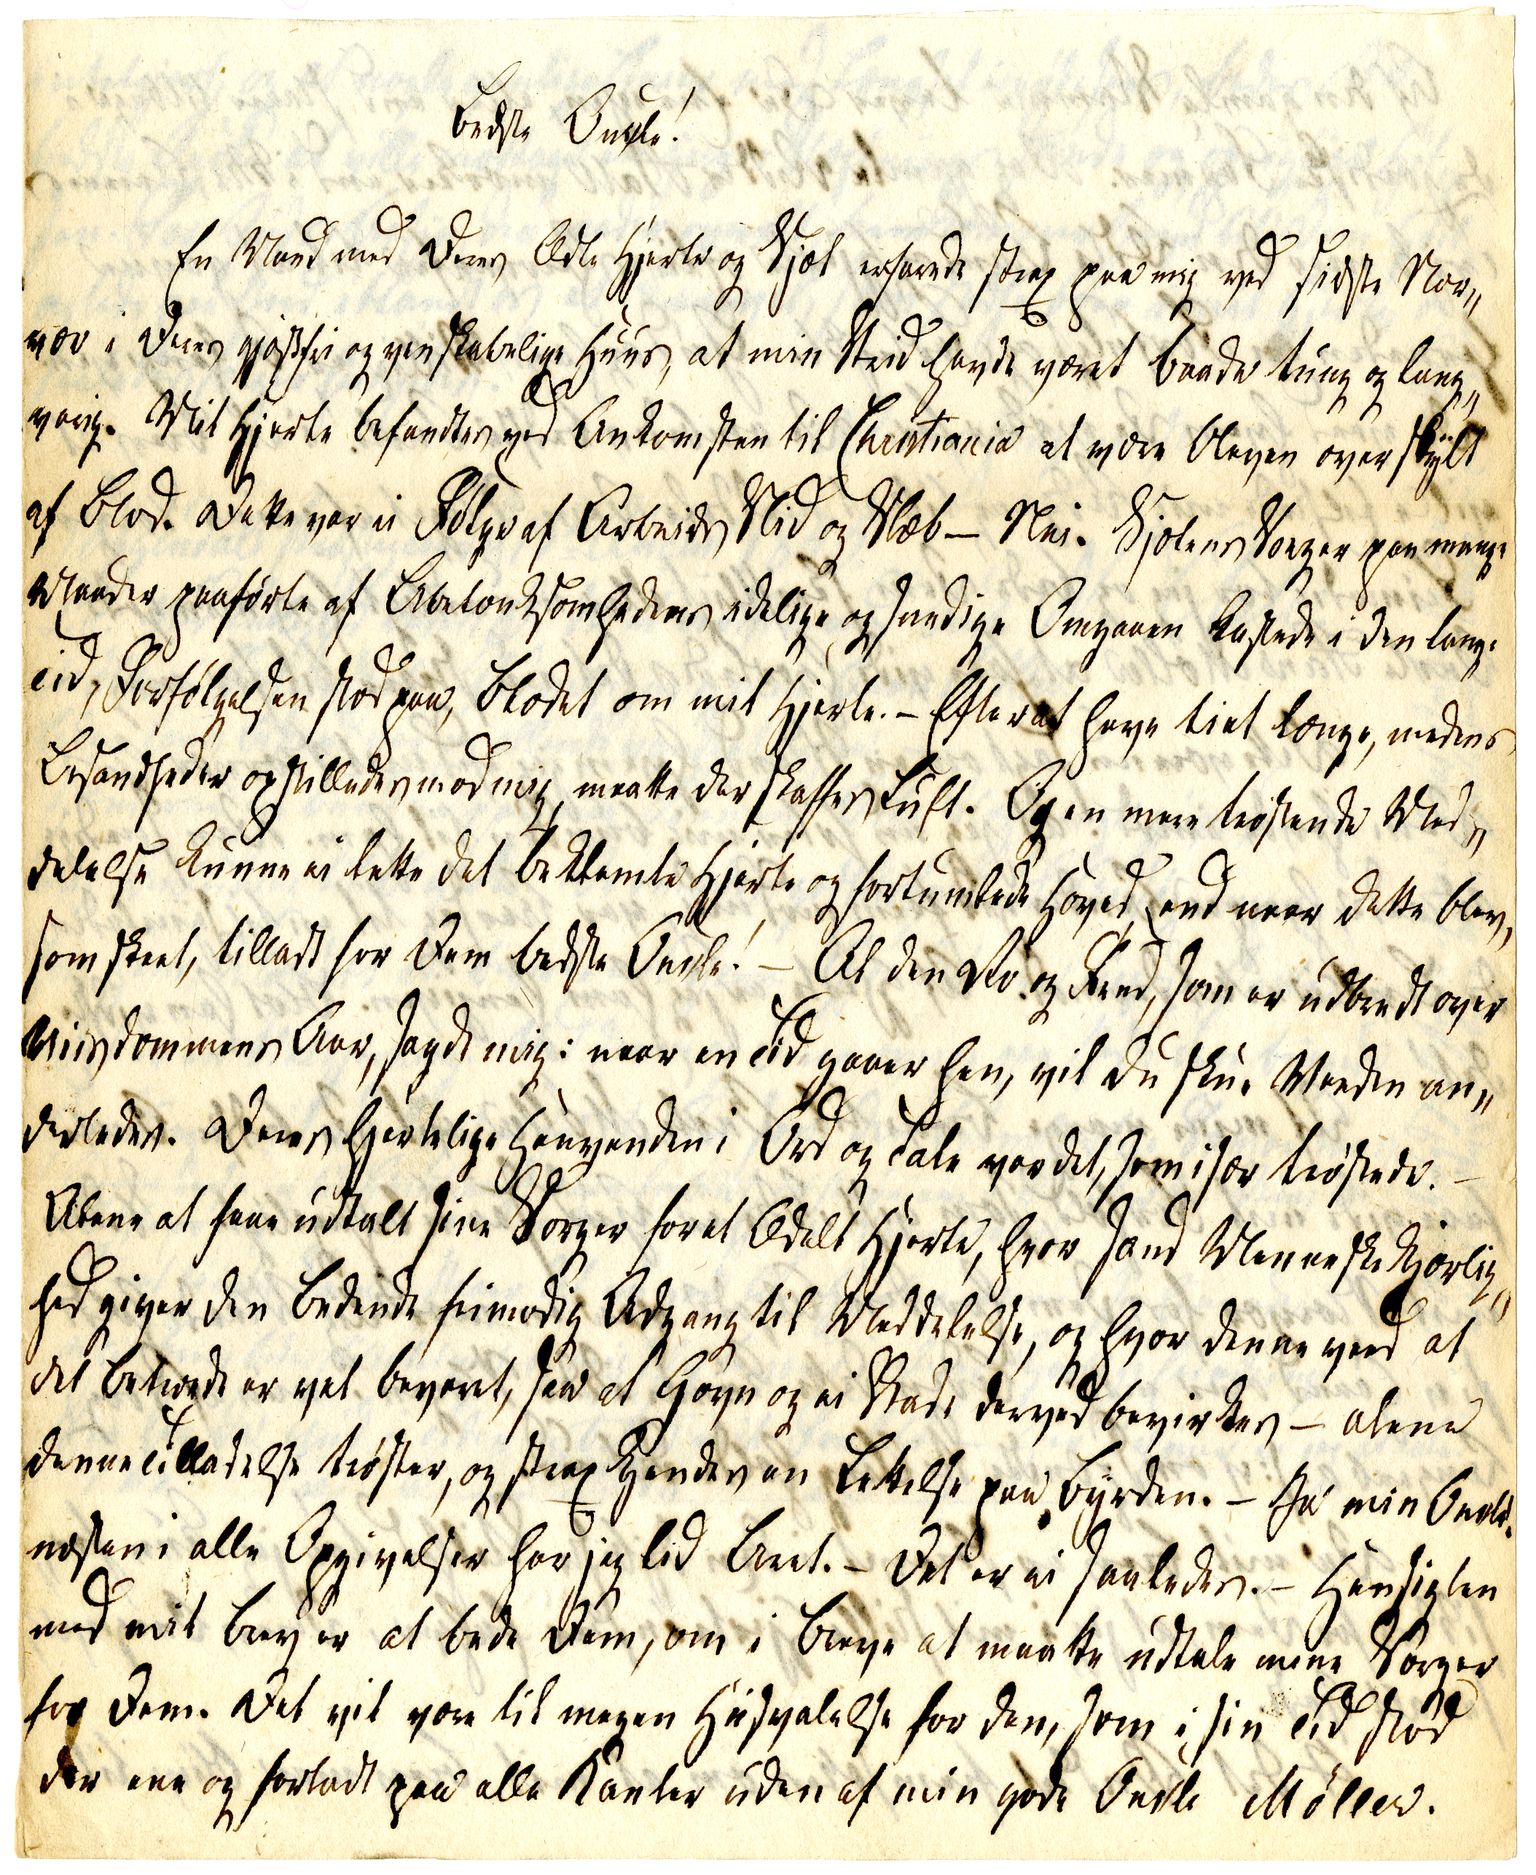 Bedste Onkle!
En Mand med Deres Ædle Hjerte og Sjæl erfarede strax paa mig ved sidste Nær„
vær i Deres gjæstfri og venskabelige Huus, at min Strid havde været baade tung og lang„
varig. Mit Hjerte befandtes ved Ankomsten til Christiania at være bleven overskÿlt
af Blod. Dette var ei Følge af Arbeids Slid og Slæb — Nei. Sjælens Sorger paa mange
Maader paaførte af Ubetænksomhedens idelige og Omgaaen kastede i den lange
Tid, Forfølgelsen stod paa, Blodet om mit Hjerte. — Efter at have tiet længe, medens
Usandheder opstilledes mod mig, maatte der skaffes Luft. Og en mere trøstende Med„
delelse kunne ei lette det beklemte Hjerte og fortumlede Hoved, end naar dette blev,
som skeet, tilladt for Dem bedste Onkle! — Al den Ro og Fred, som er udbredt over
Viisdommens Aar, sagde mig: naar en Tid gaaer hen, vil Du skue Verden an„
derledes. Deres hjertelige Henvenden i Ord og Tale var det, som især trøstede. —
Alene at faae udtalt sine Sorger for et Ædelt Hjerte, hvor sand Menneskekjærlig„
hed giver den Bedende frimodig Adgang til Meddelelse, og hvor denne veed at
det betroede er vel bevaret, saa at Gavn og ei Skade derved bevirkes — alene
denne Tilladelse trøster, og strax kjendes en Lettelse paa Byrden. — Ja min Onkle.
næsten i alle Opgivelser har jeg lid Uret. — Det er ei saaledes. — Hensigten
med mit Brev er at bede Dem, om i Breve at maatte udtale mine Sorger
for Dem. Det vil være til megen Husvalelse for den, som i sin Tid stod
der ene og forladt paa alle Kanter uden af min gode Onkle Møller.